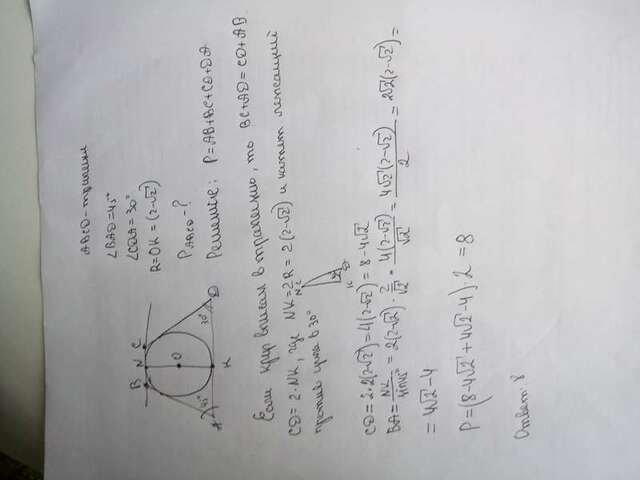 ABCD - трапеция
∠BAD = 45°
∠CDA = 30°
R = OK = (2-√2)
P ABCD - ?
Решение: P = AB + BC + CD + DA
Если круг вписан в трапецию, то BC + AD = CD + AB
CD = 2 · NK, где NK = 2R = 2(2-√2) и катет лежащий
против угла в 30°
CD = 2·2(2-√2) = 4(2-√2) = 8-4√2
BA = NK/sin45° = 2(2-√2) · 2/√2 = 4(2-√2)/√2 = 4√2(2-√2)/2 = 2√2(2-√2) =
= 4√2-4
P = (8-4√2+4√2-4)·2 = 8
Ответ: 8
B N C
O
A 45° K 30° D